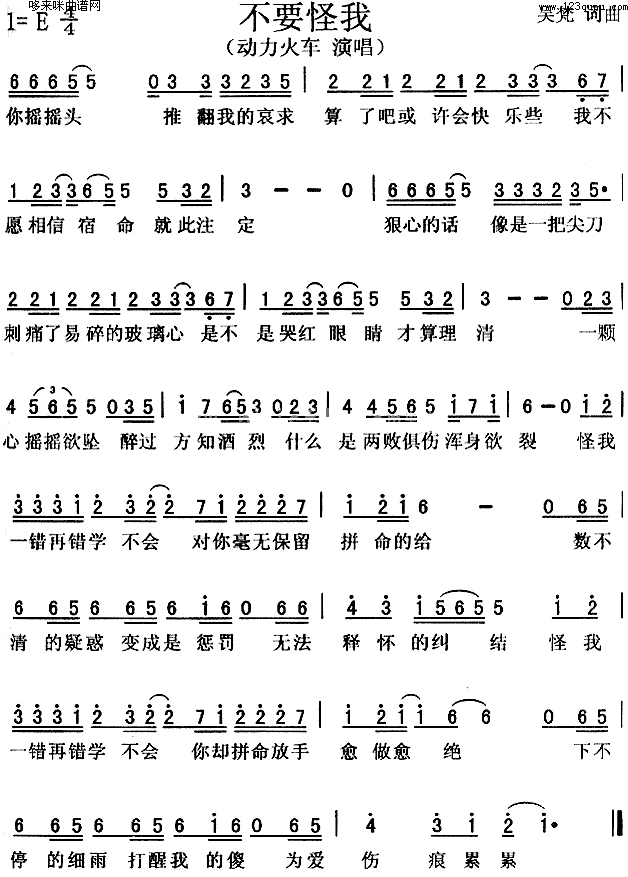 哆来咪曲谱网
www.123qupu.com
不要怪我
1= E 4/4
吴梵 词曲
（动力火车 演唱）
6 6 6 5 5 0 3 3 3 2 3 3 5 | 2 2 2 2 2 1 2 3 3 3 6 7 |
你摇摇头 推翻我的哀求 算了吧或许会快乐些 我不
1 2 3 3 6 5 5 5 3 2 | 3 - - 0 | 6 6 6 5 5 3 3 3 2 3 5· |
愿相信宿命就此注定 狠心的话 像是一把尖刀
2 2 1 2 2 1 2 2 3 3 6 7 | 1 2 3 3 6 5 5 5 3 2 | 3 - - 0 2 3 |
刺痛了易碎的玻璃心 是不是哭红眼睛才算理清 一颗
4 5 6 5 5 0 3 5 | i 7 6 5 3 0 2 3 | 4 4 5 6 5 i 7 i | 6 - 0 i 2 |
心摇摇欲坠 醉过方知酒烈 什么是两败俱伤浑身欲裂 怪我
3 3 3 i 2 3 2 2 7 i 2 2 2 7 | i 2 i 6 - 0 6 5 |
一错再错学不会 对你毫无保留 拼命的给 数不
6 6 5 6 6 5 6 i 6 0 6 6 | 4 3 i 5 6 5 5 i 2 |
清的疑惑变成是惩罚 无法释怀的纠结 怪我
3 3 3 i 2 3 2 2 7 i 2 2 2 7 | i 2 i i 6 6 0 6 5 |
一错再错学不会 你却拼命放手 愈做愈绝 下不
6 6 5 6 6 5 6 i 6 0 6 5 | 4 3 i 2 i· ‖
停的细雨打醒我的傻 为爱伤痕累累